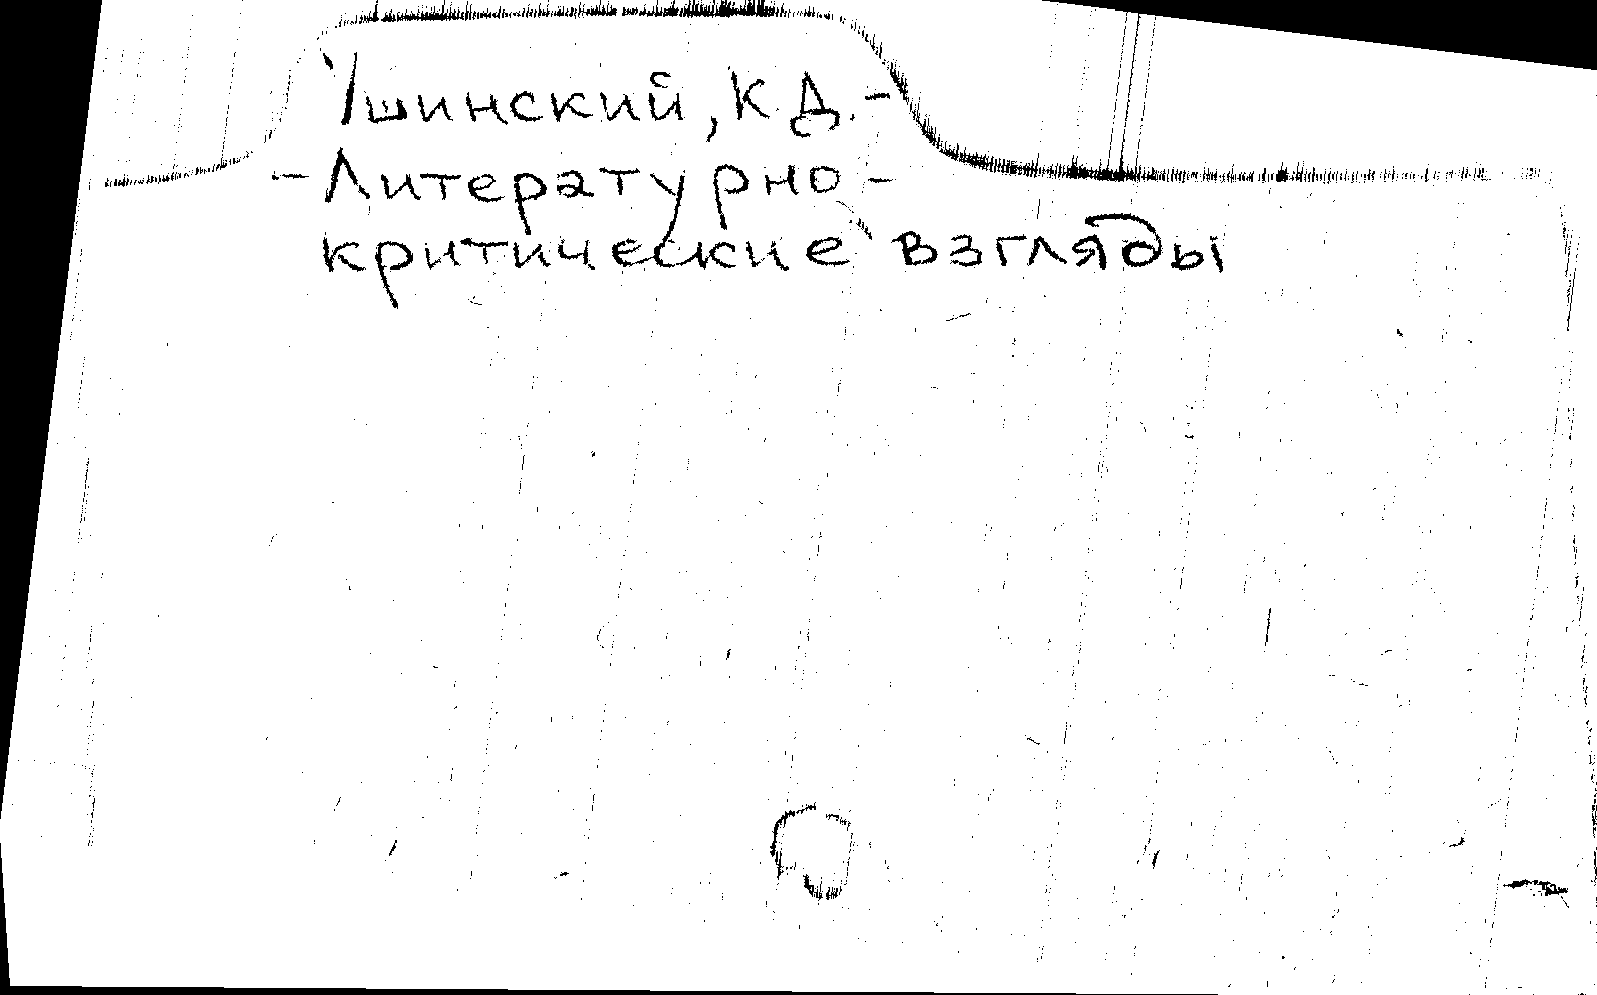 Ушинский, К Д. -
- Литературно -
критические взгляды